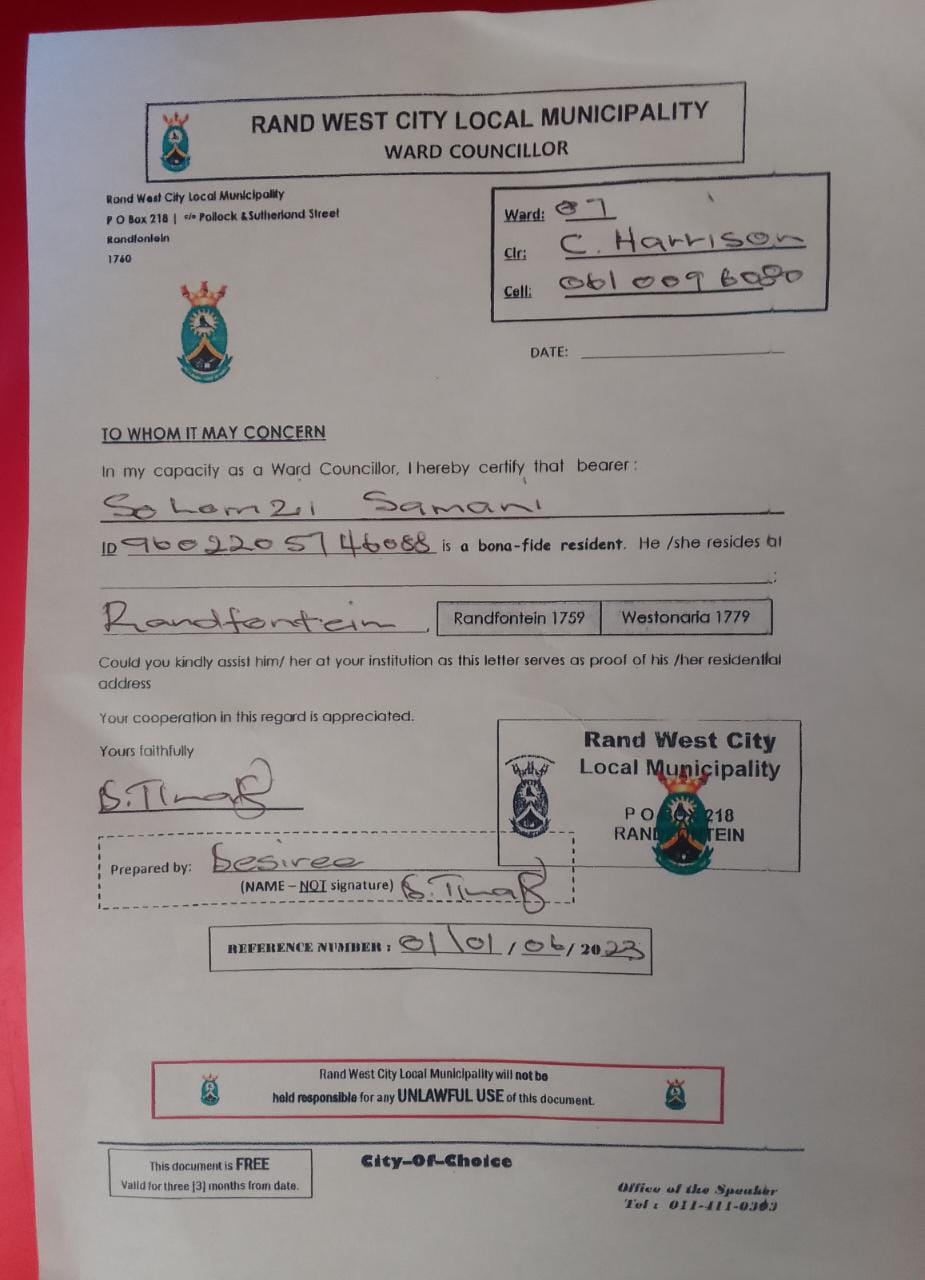 RAND WEST CITY LOCAL MUNICIPALITY
WARD COUNCILLOR
Rand West City Local Municipality
P O Box 218 | c/o Pollock & Sutherland Street
Randfontein
1760
Ward: 07
Clr: C. Harrison
Cell: 061 009 6080
DATE:
TO WHOM IT MAY CONCERN
In my capacity as a Ward Councillor, I hereby certify that bearer :
Solomzi Samani
ID 9602205746088 is a bona-fide resident. He /she resides at
;
Randfontein , Randfontein 1759 Westonaria 1779
Could you kindly assist him/ her at your institution as this letter serves as proof of his /her residential
address
Your cooperation in this regard is appreciated.
Yours faithfully
Rand West City
Local Municipality
P O BOX 218
RANDFONTEIN
Prepared by: Desiree
(NAME – NOT signature)
REFERENCE NUMBER : 01/01/06/2023
Rand West City Local Municipality will not be
held responsible for any UNLAWFUL USE of this document.
This document is FREE
Valid for three [3] months from date.
City-Of-Choice
Office of the Speaker
Tel : 011-411-0303